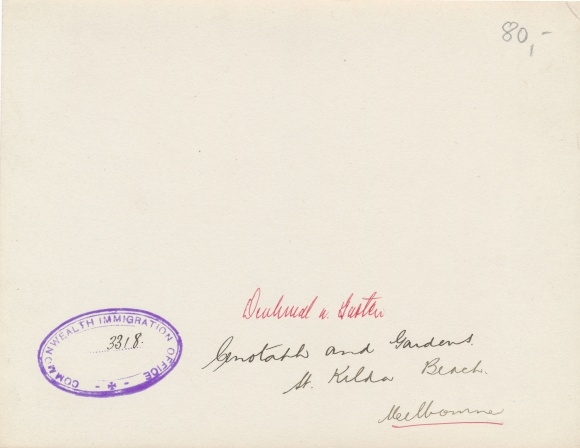 80,-
Denkmal u. Garten
Cenotaph and Gardens.
St. Kilda Beach.
Melbourne
COMMONWEALTH IMMIGRATION OFFICE
3318.